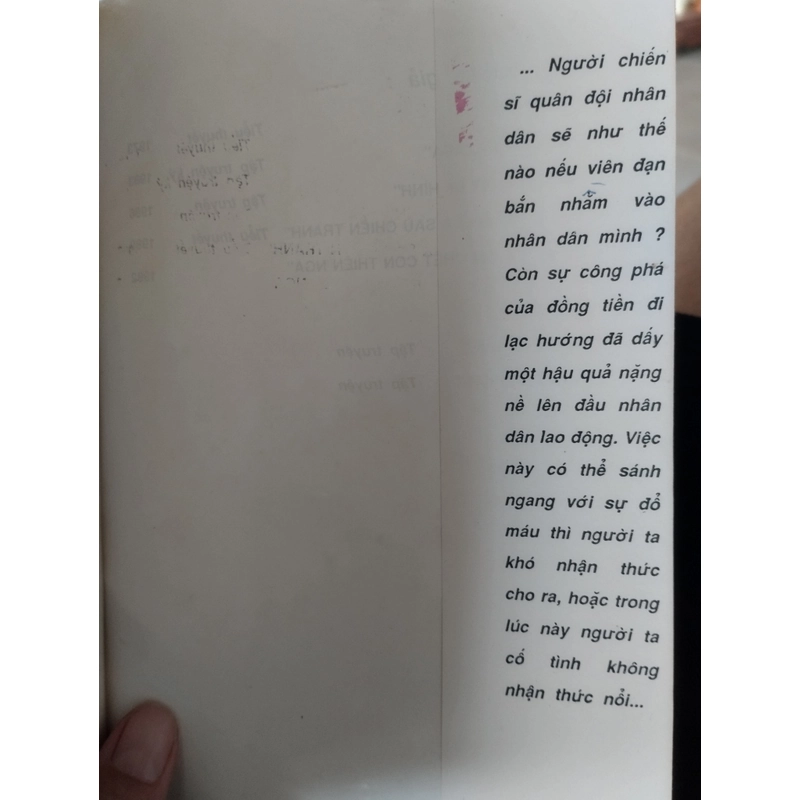 ... Người chiến
sĩ quân đội nhân
dân sẽ như thế
nào nếu viên đạn
bắn nhầm vào
nhân dân mình ?
Còn sự công phá
của đồng tiền đi
lạc hướng đã dấy
một hậu quả nặng
nề lên đầu nhân
dân lao động. Việc
này có thể sánh
ngang với sự đổ
máu thì người ta
khó nhận thức
cho ra, hoặc trong
lúc này người ta
cố tình không
nhận thức nổi...